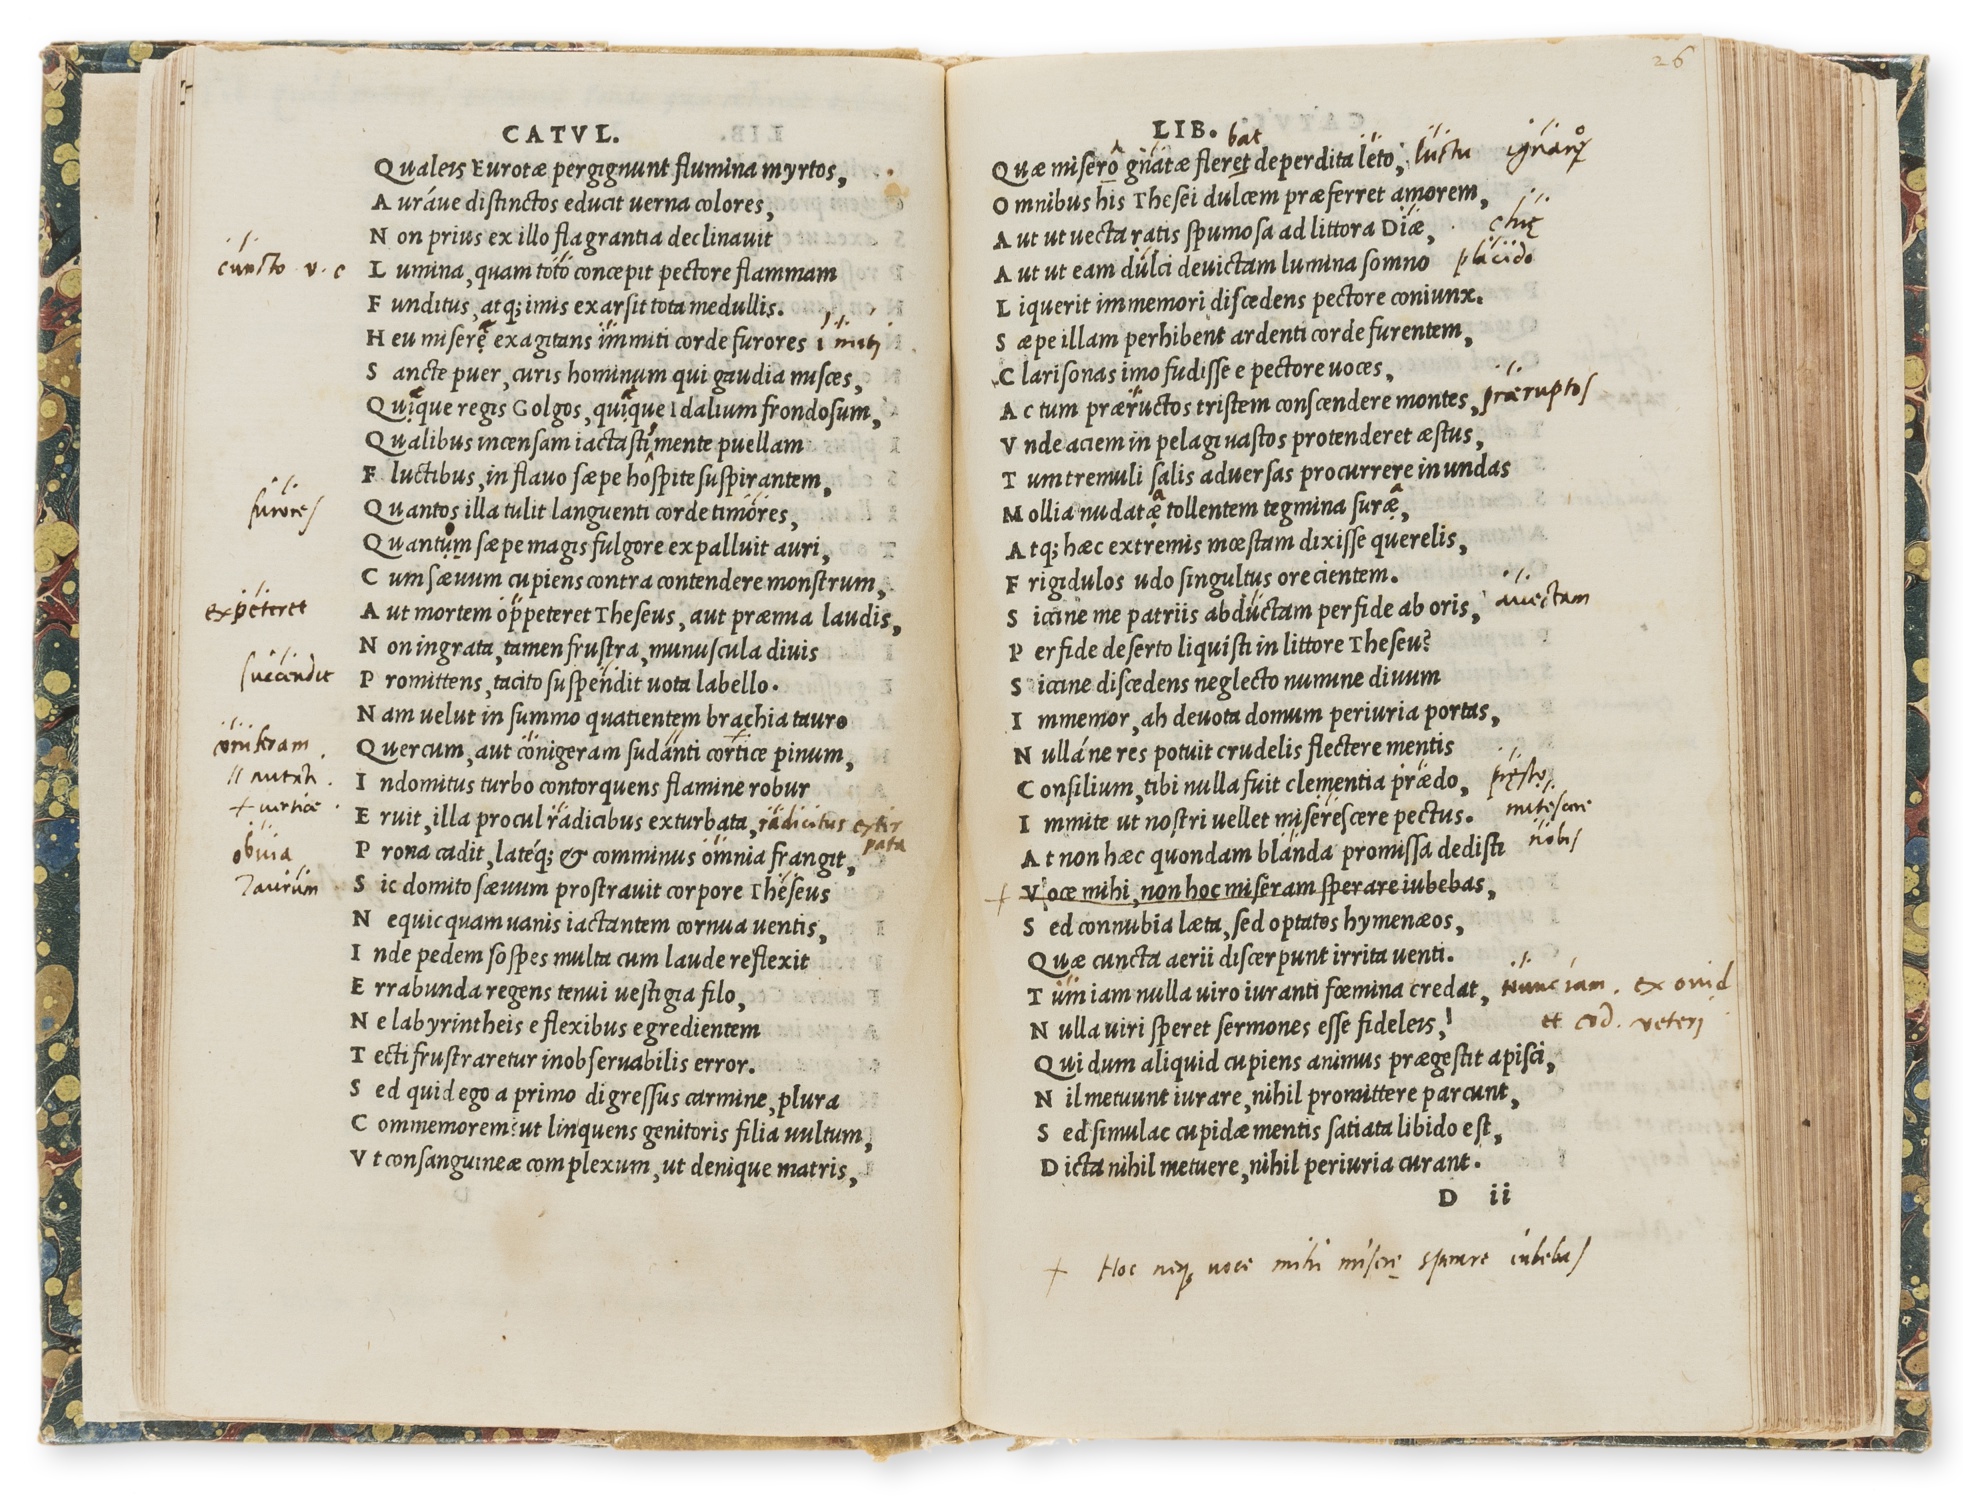 CATVL.
Qualeis Eurotæ pergignunt flumina myrtos,
Auráue distinctos educit uerna colores,
Non prius ex illo flagrantia declinauit
cuncto v. c
Lumina, quam toto concepit pectore flammam
Funditus, atq; imis exarsit tota medullis.
Heu misere exagitans immiti corde furores
Sancte puer, curis hominum qui gaudia misces,
Quique regis Golgos, quique Idalium frondosum,
Qualibus incensam iactasti mente puellam
Fluctibus, in flauo sæpe hospite suspirantem,
furores
Quantos illa tulit languenti corde timores,
Quantum sæpe magis fulgore expalluit auri,
Cum sæuum cupiens contra contendere monstrum,
expeteret
Aut mortem oppeteret Theseus, aut præmia laudis,
Non ingrata, tamen frustra, munuscula diuis
succendit
Promittens, tacito suspendit uota labello.
Nam uelut in summo quatientem brachia tauro
coniferam
Quercum, aut conigeram sudanti cortice pinum,
nutanti
Indomitus turbo contorquens flamine robur
+ vertice
Eruit, illa procul radicibus exturbata, radicitus extir
pata
obuia
Prona cadit, latéq; & comminus omnia frangit,
Taurum
Sic domito sæuum prostrauit corpore Theseus
Nequicquam uanis iactantem cornua uentis,
Inde pedem sospes multa cum laude reflexit
Errabunda regens tenui uestigia filo,
Ne labyrintheis e flexibus egredientem
Tecti frustraretur inobseruabilis error.
Sed quid ego a primo digressus carmine, plura
Commemorem? ut linquens genitoris filia uultum,
Vt consanguineæ complexum, ut denique matris,
26
LIB.
bat
Quæ misero gnatæ fleret deperdita leto, luctu
Omnibus his Thesei dulcem præferret amorem,
Aut ut uecta ratis spumosa ad littora Diæ,
Aut ut eam dulci deuictam lumina somno placido
Liquerit immemori discedens pectore coniunx.
Sæpe illam perhibent ardenti corde furentem,
Clarisonas imo fudisse e pectore uoces,
Ac tum præructos tristem conscendere montes, præruptos
Vnde aciem in pelagi uastos protenderet æstus,
Tum tremuli salis aduersas procurrere in undas
Mollia nudatæ tollentem tegmina suræ,
Atq; hæc extremis mœstam dixisse querelis,
Frigidulos udo singultus ore cientem.
Siccine me patriis abductam perfide ab oris, auectam
Perfide deserto liquisti in littore Theseu?
Siccine discedens neglecto numine diuum
Immemor, ah deuota domum periuria portas,
Nulláne res potuit crudelis flectere mentis
Consilium, tibi nulla fuit clementia prædo, presto,
Immite ut nostri uellet miserescere pectus. mitescere
At non hæc quondam blanda promissa dedisti nobis
+ Voce mihi, non hoc miseram sperare iubebas,
Sed connubia læta, sed optatos hymenæos,
Quæ cuncta aerii discerpunt irrita uenti.
Tum iam nulla uiro iuranti fœmina credat, Nunc iam. ex ouid
Nulla uiri speret sermones esse fideleis, et cod. veteri
Qui dum aliquid cupiens animus prægestit apisci,
Nil metuunt iurare, nihil promittere parcunt,
Sed simulac cupidæ mentis satiata libido est,
Dicta nihil metuere, nihil periuria curant.
D ii
+ Hoc neq; voce mihi misere sperare iubebas